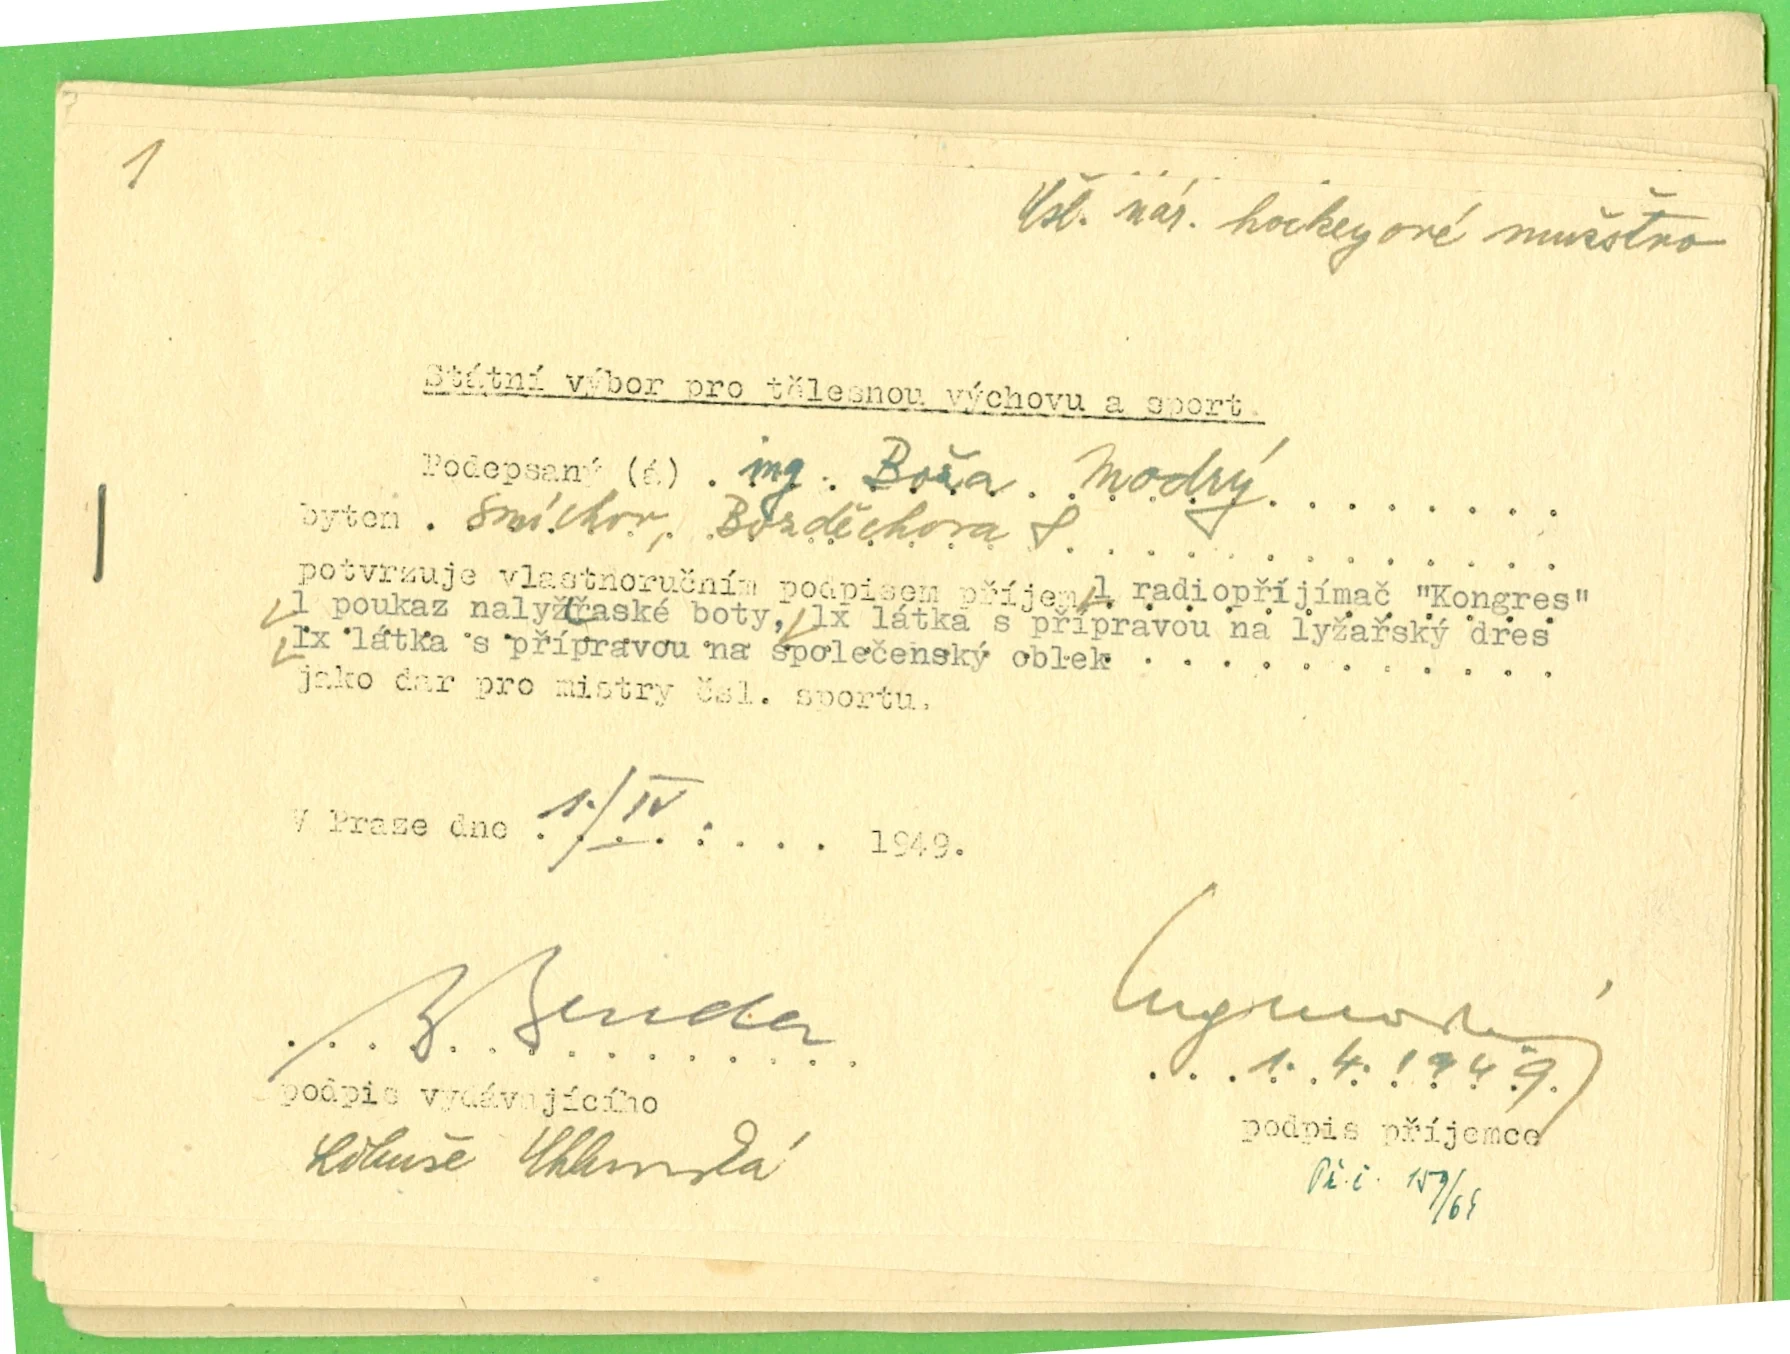 1
Čsl. nár. hockeyové mužstvo
Státní výbor pro tělesnou výchovu a sport
Podepsaný (á) . ing. Boža Modrý. . . . . . . .
bytem . Smíchov, Bozděchova 8. . . . . . . . . . . .
potvrzuje vlastnoručním podpisem příjem 1 radiopříjímač "Kongres"
1 poukaz nalyžařaské boty, 1x látka s přípravou na lyžařský dres
1x látka s přípravou na společenský oblek . . . . . . . . . . .
jako dar pro mistry čsl. sportu.
V Praze dne 1./IV . . . . 1949.
Benda
Ing Modrý
1. 4. 1949.
podpis vydávajícího
podpis příjemce
Libuše
Př. č. 159/65